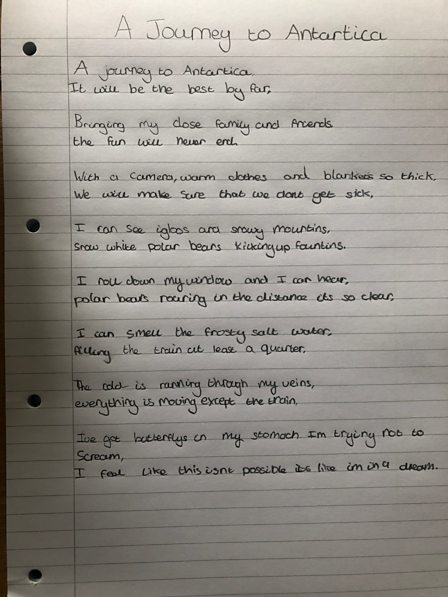 A Journey to Antartica
A journey to Antartica.
It will be the best by far,
Bringing my close family and friends
the fun will never end.
With a camera, warm clothes and blankets so thick,
We will make sure that we dont get sick,
I can see igloos and snowy mountins,
Snow white polar bears kicking up fountins.
I roll down my window and I can hear,
polar bears roaring in the distance its so clear,
I can smell the frosty salt water,
filling the train at lease a quarter,
The cold is running through my veins,
everything is moving except the train,
Ive got butterflys in my stomach Im trying not to
Scream,
I feel like this isnt possible its like im in a dream.